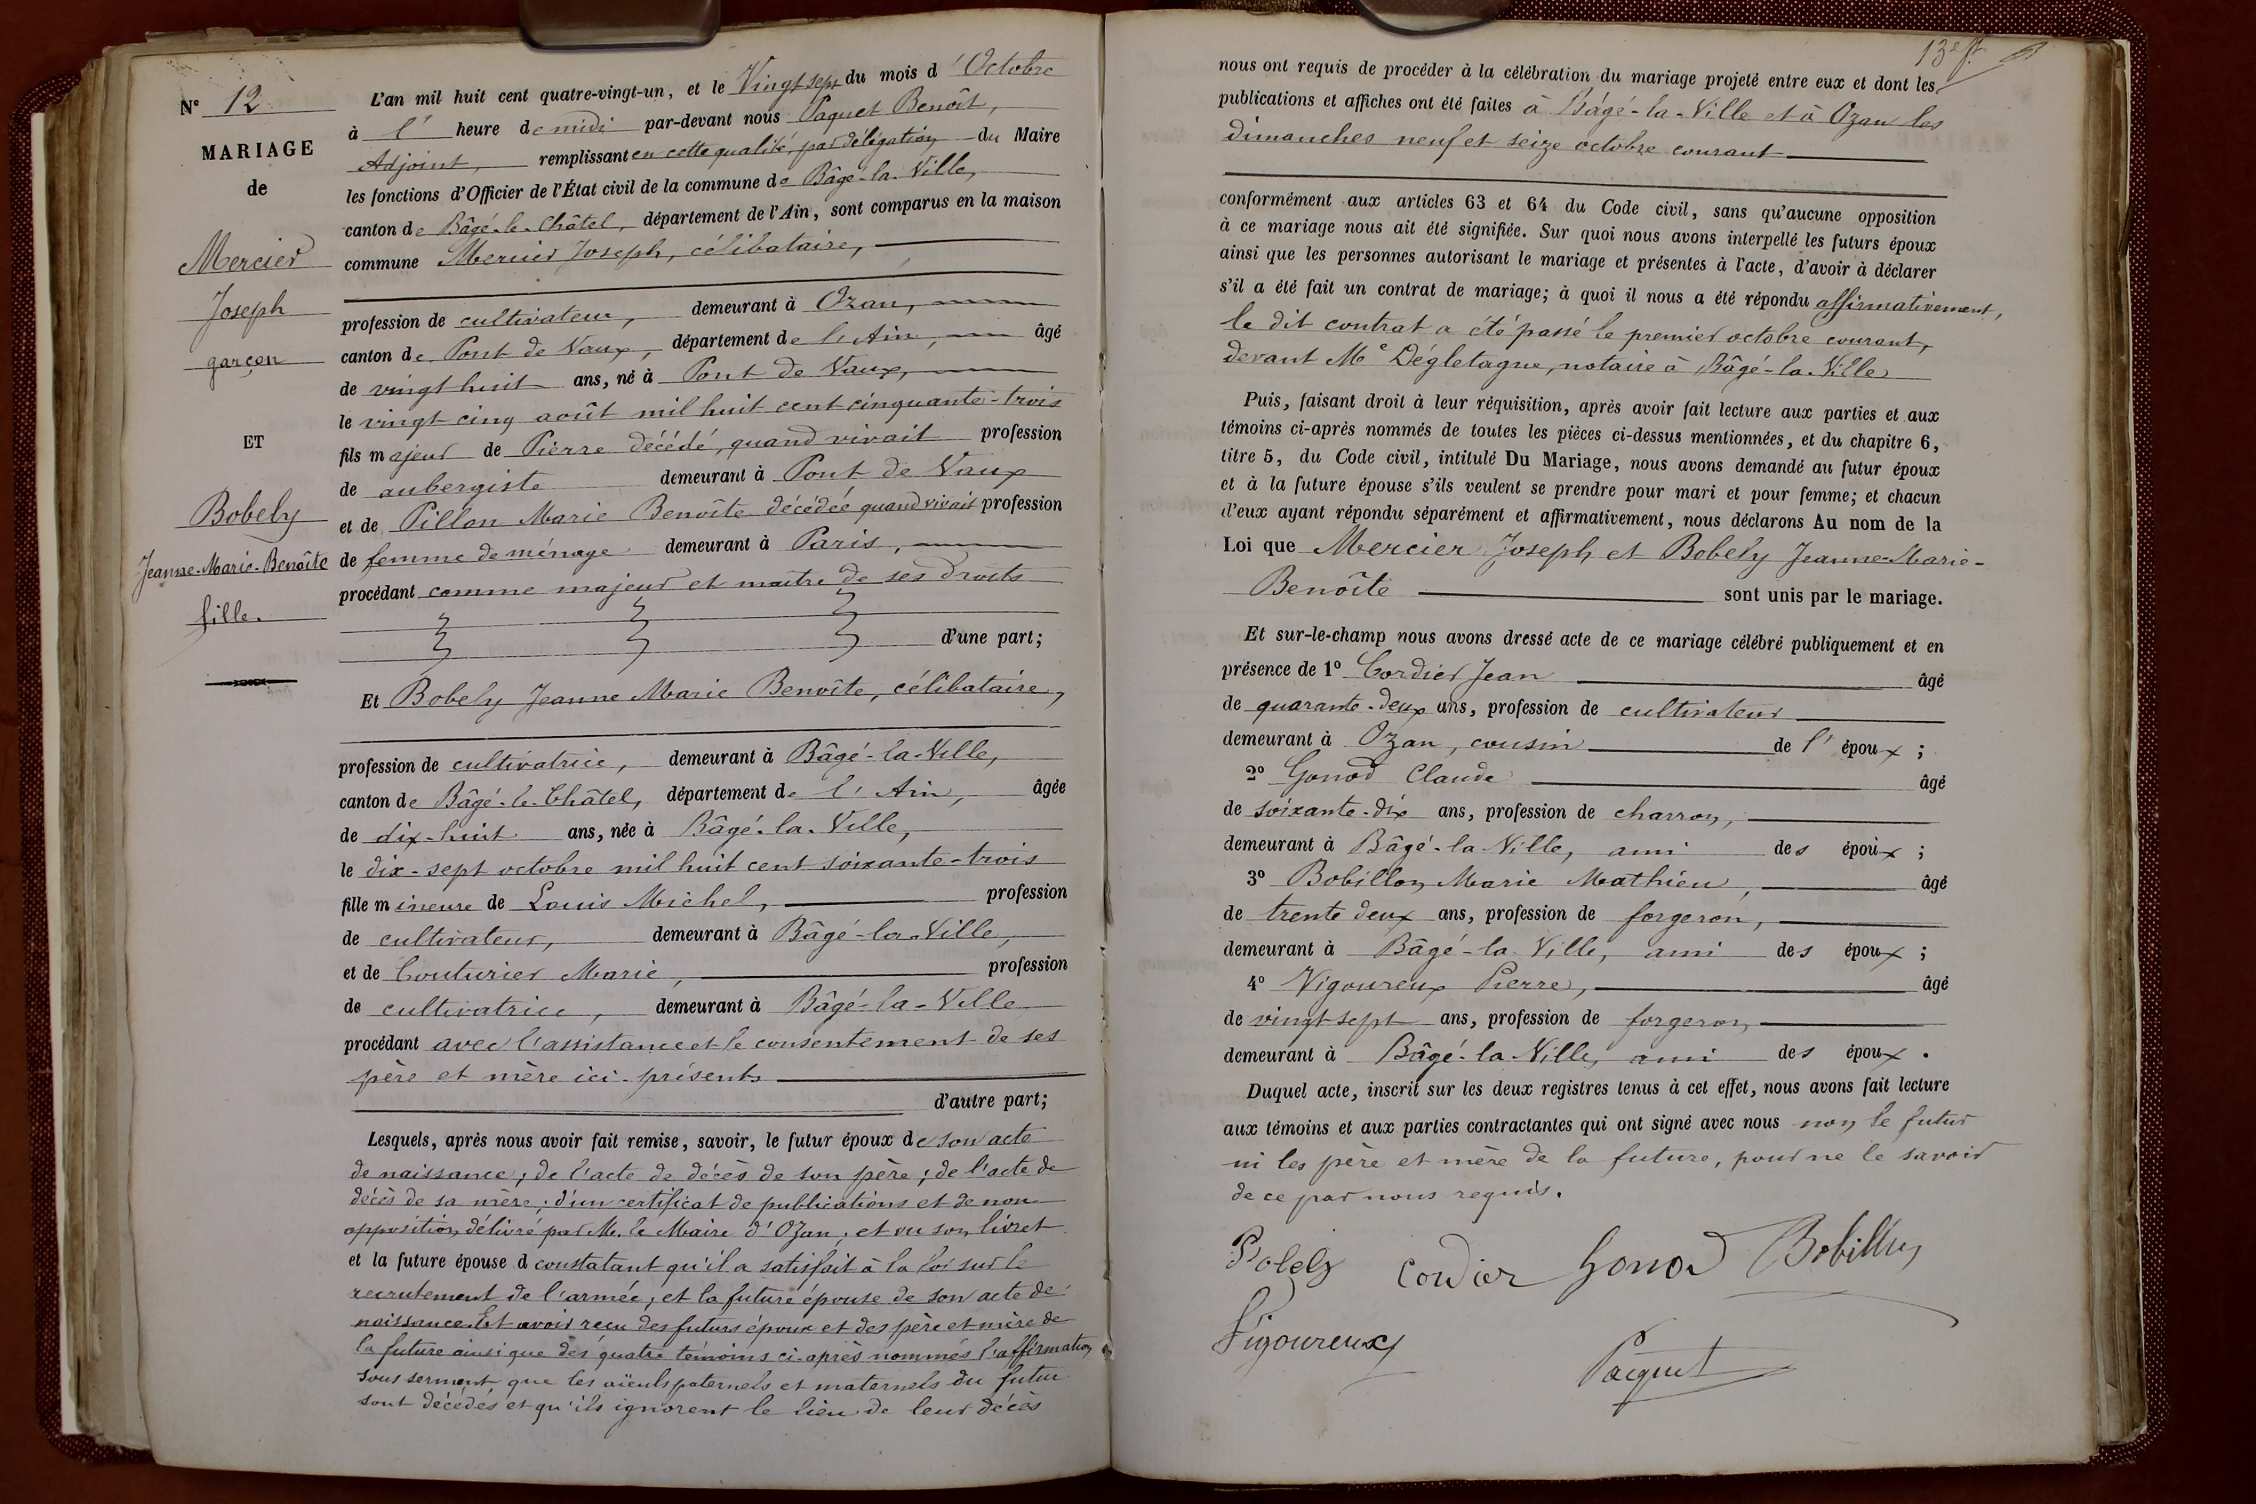 N° 12
MARIAGE
de
Mercier
Joseph
garçon
ET
Bobely
Jeanne-Marie-Benoîte
fille.
L'an mil huit cent quatre-vingt-un, et le Vingt sept du mois d'Octobre
à l' heure de midi par-devant nous Paquet Benoît,
Adjoint, remplissant en cette qualité, par délégation du Maire
les fonctions d'Officier de l'État civil de la commune de Bâgé-la-Ville,
canton de Bâgé-le-Châtel, département de l'Ain, sont comparus en la maison
commune Mercier Joseph, célibataire,
profession de cultivateur, demeurant à Ozan,
canton de Pont de Vaux, département de l'Ain, âgé
de vingt huit ans, né à Pont de Vaux,
le vingt cinq août mil huit cent cinquante-trois
fils majeur de Pierre décédé, quand vivait profession
de aubergiste demeurant à Pont de Vaux
et de Pillon Marie Benoîte décédée quand vivait profession
de femme de ménage demeurant à Paris,
procédant comme majeur et maître de ses droits
d'une part;
Et Bobely Jeanne Marie Benoîte, célibataire,
profession de cultivatrice, demeurant à Bâgé-la-Ville,
canton de Bâgé-le-Châtel, département de l'Ain, âgée
de dix-huit ans, née à Bâgé-la-Ville,
le dix-sept octobre mil huit cent soixante-trois
fille mineure de Louis Michel, profession
de cultivateur, demeurant à Bâgé-la-Ville,
et de Couturier Marie, profession
de cultivatrice, demeurant à Bâgé-la-Ville
procédant avec l'assistance et le consentement de ses
père et mère ici présents
d'autre part;
Lesquels, après nous avoir fait remise, savoir, le futur époux de son acte
de naissance; de l'acte de décès de son père; de l'acte de
décès de sa mère; d'un certificat de publications et de non
opposition délivré par M. le Maire d'Ozan; et vu son livret
et la future épouse d constatant qu'il a satisfait à la loi sur le
recrutement de l'armée; et la future épouse de son acte de
naissance. Et avoir reçu des futurs époux et des père et mère de
la future ainsi que des quatre témoins ci-après nommés l'affirmation
sous serment que les aïeuls paternels et maternels du futur
sont décédés et qu'ils ignorent le lieu de leur décès
13e f.
nous ont requis de procéder à la célébration du mariage projeté entre eux et dont les
publications et affiches ont été faites à Bâgé-la-Ville et à Ozan les
dimanches neuf et seize octobre courant
conformément aux articles 63 et 64 du Code civil, sans qu'aucune opposition
à ce mariage nous ait été signifiée. Sur quoi nous avons interpellé les futurs époux
ainsi que les personnes autorisant le mariage et présentes à l'acte, d'avoir à déclarer
s'il a été fait un contrat de mariage; à quoi il nous a été répondu affirmativement,
le dit contrat a été passé le premier octobre courant,
devant Me Dégletagne, notaire à Bâgé-la-Ville
Puis, faisant droit à leur réquisition, après avoir fait lecture aux parties et aux
témoins ci-après nommés de toutes les pièces ci-dessus mentionnées, et du chapitre 6,
titre 5, du Code civil, intitulé Du Mariage, nous avons demandé au futur époux
et à la future épouse s'ils veulent se prendre pour mari et pour femme; et chacun
d'eux ayant répondu séparément et affirmativement, nous déclarons Au nom de la
Loi que Mercier Joseph et Bobely Jeanne-Marie-
Benoîte sont unis par le mariage.
Et sur-le-champ nous avons dressé acte de ce mariage célébré publiquement et en
présence de 1° Cordier Jean âgé
de quarante-deux ans, profession de cultivateur
demeurant à Ozan, cousin de l'époux;
2° Gonod Claude âgé
de soixante-dix ans, profession de charron,
demeurant à Bâgé-la-Ville, ami des époux;
3° Bobillon Marie Mathieu, âgé
de trente deux ans, profession de forgeron,
demeurant à Bâgé-la-Ville, ami des époux;
4° Vigoureux Pierre, âgé
de vingt-sept ans, profession de forgeron
demeurant à Bâgé-la-Ville, ami des époux.
Duquel acte, inscrit sur les deux registres tenus à cet effet, nous avons fait lecture
aux témoins et aux parties contractantes qui ont signé avec nous non le futur
ni les père et mère de la future, pour ne le savoir
de ce par nous requis.
Bobely Cordier Gonod Bobillon
Vigoureux
Pacquet